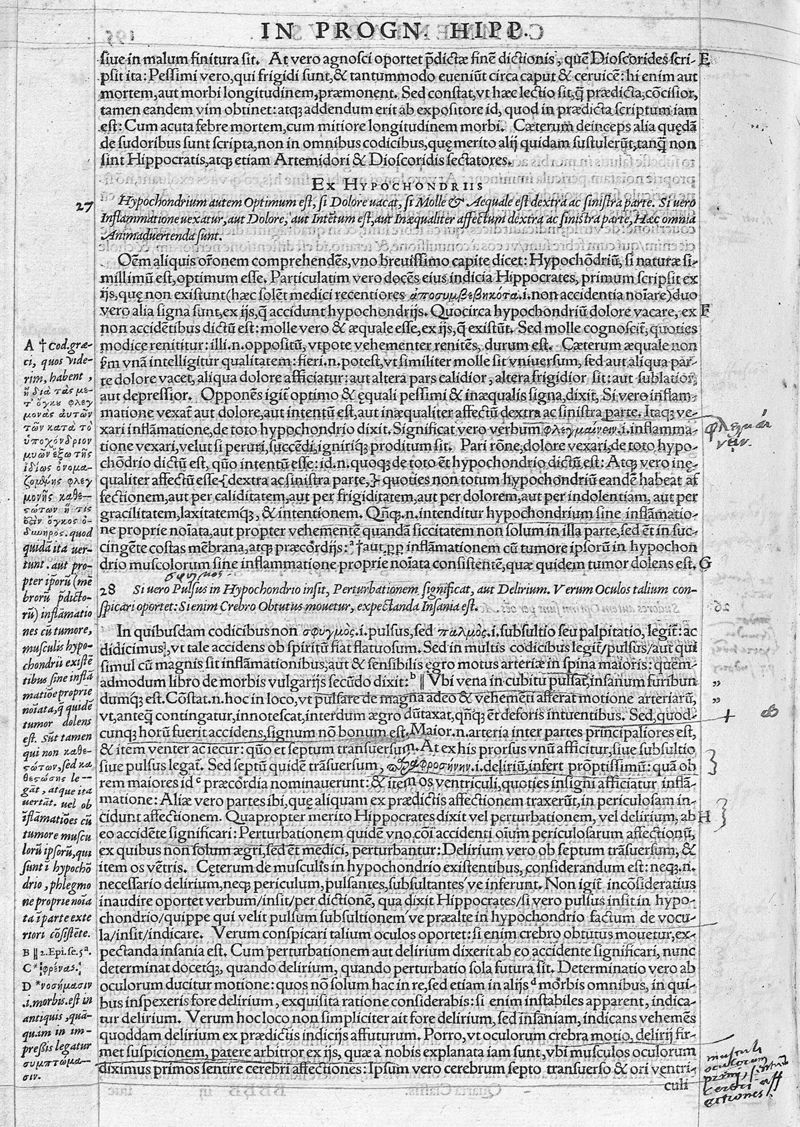 IN PROGN. HIPP.
siue in malum finitura sit. At vero agnosci oportet p̄dictæ finẽ dictionis, quẽ Dioscorides scri- E
psit ita: Pessimi vero, qui frigidi sunt, & tantummodo eueniũt circa caput & ceruicẽ: hi enim aut
mortem, aut morbi longitudinem, præmonent. Sed constat, vt hæc lectio sit, q̃ prædicta, cõcisior,
tamen eandem vim obtinet: atqꝫ addendum erit ab expositore id, quod in prædicta scriptum iam
est: Cum acuta febre mortem, cum mitiore longitudinem morbi. Cæterum deinceps alia quędã
de sudoribus sunt scripta, non in omnibus codicibus, quę merito alij quidam sustulerũt, tanq̃ non
sint Hippocratis, atqꝫ etiam Artemidori & Dioscoridis sectatores.
EX HYPOCHONDRIIS
27 Hypochondrium autem Optimum est, si Dolore uacat, si Molle & Aequale est dextra ac sinistra parte. Si uero
Inflammatione uexatur, aut Dolore, aut Intẽtum est, aut Inæqualiter affectum dextra ac sinistra parte, Hæc omnia
Animaduertenda sunt.
Oẽm aliquis orõnem comprehendẽs, vno breuissimo capite dicet: Hypochõdriũ, si naturæ si-
millimũ est, optimum esse. Particulatim vero docẽs eius indicia Hippocrates, primum scripsit ex
ijs, quę non existunt (hæc solẽt medici recentiores ἀποσυμβεβηκότα .i. non accidentia noĩare) duo
vero alia signa sunt, ex ijs, q̃ accidunt hypochondrijs. Quocirca hypochondriũ dolore vacare, ex F
non accidẽtibus dictũ est: molle vero & æquale esse, ex ijs, q̃ existũt. Sed molle cognoscit̃, quoties
modice renititur: illi .n. oppositũ, vtpote vehementer renitẽs, durum est. Cæterum æquale non
ẜm vnã intelligitur qualitatem: fieri .n. potest, vt similiter molle sit vniuersum, sed aut aliqua par-
te dolore vacet, aliqua dolore afficiatur: aut altera pars calidior, altera frigidior sit: aut sublatior,
aut depressior. Opponẽs igit̃ optimo & ęquali pessimi & inæqualis signa, dixit, Si vero inflam-
matione vexat̃ aut dolore, aut intentũ est, aut inæqualiter affectũ dextra ac sinistra parte. Itaqꝫ ve-
xari inflãmatione, de toto hypochondrio dixit. Significat vero verbum φλεγμαίνειν .i. inflamma-
tione vexari, velut si peruri, succẽdi, igniriqꝫ proditum sit. Pari rõne, dolore vexari, de toto hypo-
chõdrio dictũ est, quo intentũ esse: id .n. quoqꝫ de toto ẽt hypochondrio dictũ est: Atqꝫ vero inę-
qualiter affectũ esse {dextra ac sinistra parte,} quoties non totum hypochondriũ eandẽ habeat af-
fectionem, aut per caliditatem, aut per frigiditatem, aut per dolorem, aut per indolentiam, aut per
gracilitatem, laxitatemqꝫ, & intentionem. Qñqꝫ .n. intenditur hypochondrium sine inflãmatio-
ne proprie noĩata, aut propter vehementẽ quandã siccitatem non solum in illa parte, sed ẽt in suc-
cingẽte costas mẽbrana, atqꝫ præcordijs: † aut, pp inflãmationem cũ tumore ipsorũ in hypochon
drio muscolorum sine inflammatione proprie noĩata consistentẽ, quæ quidem tumor dolens est. G
σφυγμος
28 Si uero Pulsus in Hypochondrio insit, Perturbationem significat, aut Delirium. Verum Oculos talium con-
spicari oportet: Si enim Crebro Obtutus mouetur, expectanda Insania est.
In quibusdam codicibus non σφυγμὸς .i. pulsus, sed παλμὸς .i. subsultio seu palpitatio, legit̃: ac
didicimus, vt tale accidens ob spiritũ fiat flatuosum. Sed in multis codicibus legit̃/pulsus/aut qui
simul cũ magnis sit inflãmationibus, aut & sensibilis ęgro motus arteriæ in spina maioris: quem-
admodum libro de morbis vulgarijs secũdo dixit: b ‖ Vbi vena in cubitu pulsat, insanum furibun
dumqꝫ est. Cõstat .n. hoc in loco, vt pulsare de magna adeo & vehemẽti afferat motione arteriarũ,
vt, anteq̃ contingat, innotescat, interdum ægro dũtaxat, qñqꝫ ẽt deforis intuentibus. Sed, quod-
cunqꝫ horũ fuerit accidens, signum nõ bonum est. Maior .n. arteria inter partes principaliores est,
& item venter ac iecur: quõ et septum transuersum. At ex his prorsus vnũ afficitur, siue subsultio
siue pulsus legat̃. Sed septũ quidẽ trãsuersum, παραφροσύνην .i. deliriũ, infert prõptissimũ: quã ob
rem maiores id c præcordia nominauerunt: & item os ventriculi, quoties insigni afficiatur inflã-
matione: Aliæ vero partes ibi, quę aliquam ex prædictis affectionem traxerũt, in periculosam in-
cidunt affectionem. Quapropter merito Hippocrates dixit vel perturbationem, vel delirium, ab H
eo accidẽte significari: Perturbationem quidẽ vno cõi accidenti oĩum periculosarum affectionũ,
ex quibus non solum ægri, sed ẽt medici, perturbantur: Delirium vero ob septum trãsuersum, &
item os vẽtris. Cęterum de musculis in hypochondrio existentibus, considerandum est: neqꝫ .n.
necessario delirium, neqꝫ periculum, pulsantes, subsultantes ve inferunt. Non igit̃ incõsideratius
inaudire oportet verbum/insit/per dictionẽ, qua dixit Hippocrates/si vero pulsus insit in hypo-
chondrio/quippe qui velit pulsum subsultionem ve præalte in hypochondrio factum de vocu-
la/insit/indicare. Verum conspicari talium oculos oportet: si enim crebro obtutus mouetur, ex-
pectanda insania est. Cum perturbationem aut delirium dixerit ab eo accidente significari, nunc
determinat docetqꝫ, quando delirium, quando perturbatio sola futura sit. Determinatio vero ab
oculorum ducitur motione: quos nõ solum hac in re, sed etiam in alijs d morbis omnibus, in qui-
bus inspexeris fore delirium, exquisita ratione considerabis: si enim instabiles apparent, indica-
tur delirium. Verum hoc loco non simpliciter ait fore delirium, sed insaniam, indicans vehemẽs
quoddam delirium ex prædictis indicijs affuturum. Porro, vt oculorum crebra motio, delirij fir-
met suspicionem, patere arbitror ex ijs, quæ a nobis explanata iam sunt, vbi musculos oculorum
diximus primos sentire cerebri affectiones: Ipsum vero cerebrum septo transuerso & ori ventri-
culi
A † Cod. græ-
ci, quos vide-
rim, habent,
ἢ διὰ τὰς με-
τ' ὄγκου φλεγ
μονὰς αὐτῶν
τῶν κατὰ τὸ
ὑποχόνδριον
μυῶν ἔξω τῆς
ἰδίως ὀνομα-
ζομένης φλεγ
μονῆς καθε-
στώτων ἥ τις
ἐστιν ὄγκος ὀ-
δυνηρός. quod
quidã ita uer-
tunt. aut pro-
pter ipsorũ (mẽ
brorũ p̄dicto-
rũ) inflãmatio
nes cũ tumore,
musculis hypo-
chondrij existẽ
tibus sine inflã
matiõe proprie
noĩata, q̃ quidẽ
tumor dolens
est. Sũt tamen
qui non καθε-
στώτων, sed κα
θεστώσης le-
gãt, atque ita
uertãt. uel ob
ĩflãmatiões cũ
tumore muscu
lorũ ipsorũ, qui
sunt ĩ hypochõ
drio, phlegmo
ne proprie noĩa
ta ĩ parte exte
riori cõsistẽte.
B ‖ 2. Epi. se. 5ª.
C * φρένας.
D * νοσήμασιν
.i. morbis. est in
antiquis, quã-
quam in im-
pressis legatur
συμπτώμα-
σιν.
φλεγμαί
νειν.
musculi
oculorum
primi sentiunt
cerebri aff
ectiones.